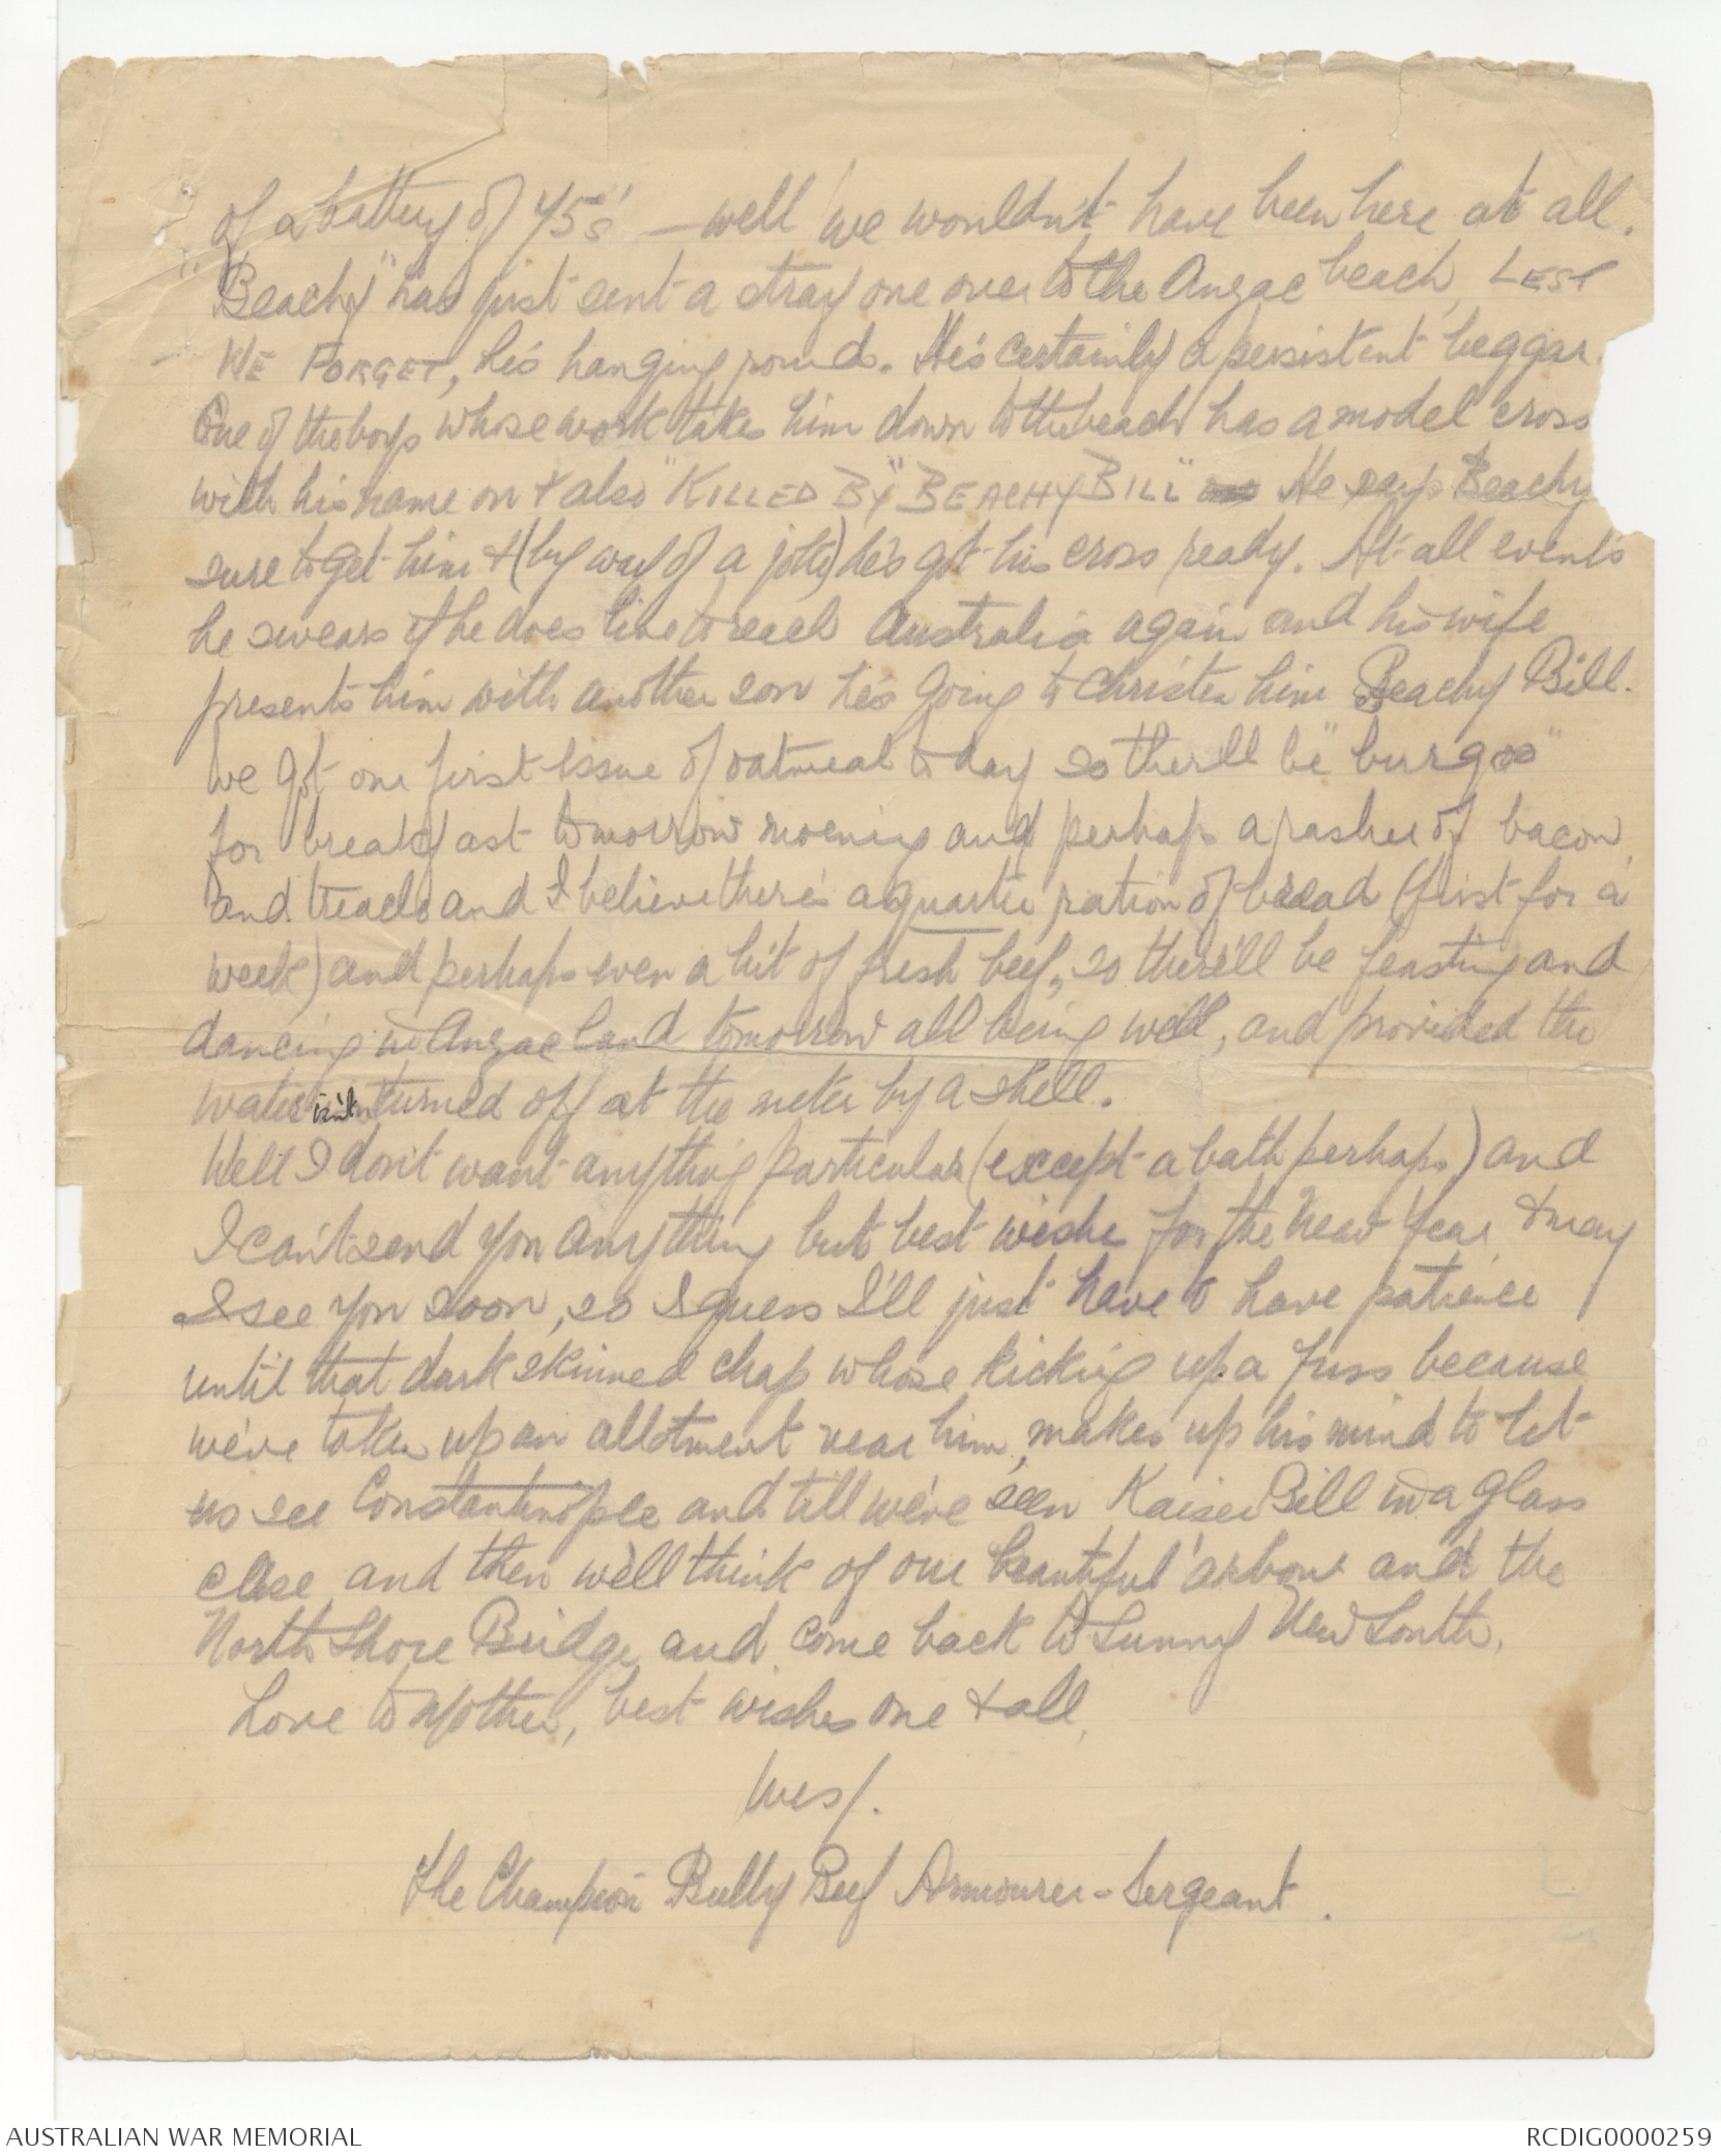 of a battery of 75s' — well we wouldn't have been here at all.
"Beachy" has just sent a stray one over to the Anzac beach, LEST
WE FORGET, he's hanging round. He's certainly a persistent beggar.
One of the boys whose work takes him down to the beach has a model cross
with his name on & also "KILLED BY "BEACHY BILL" He says Beachy
sure to get him & (by way of a joke) he's got his cross ready. At all events
he swears if he does live to reach Australia again and his wife
presents him with another son he's going to christen him Beachy Bill.
We got our first issue of oatmeal to day so there'll be "burgoo"
for breakfast tomorrow morning and perhaps a rasher of bacon,
and treacle and I believe there's a quarter ration of bread (first for a
week) and perhaps even a bit of fresh beef, so there'll be feasting and
dancing in Anzac land tomorrow all being well, and provided the
water isn't turned off at the meter by a shell.
Well I don't want anything particular (except a bath perhaps) and
I can't send you anything but best wishes for the New Year & may
I see you soon, so I guess I'll just have to have patience
until that dark skinned chap whose kicking up a fuss because
we've taken up an allotment near him, makes up his mind to let
us see Constantinople and till we've seen Kaiser Bill in a glass
case and then we'll think of our beautiful 'arbour and the
North Shore Bridge and come back to Sunny New South.
Love to Mother, best wishes one & all,
Wes/.
The Champion Bully Beef Armourer-Sergeant.
AUSTRALIAN WAR MEMORIAL
RCDIG0000259